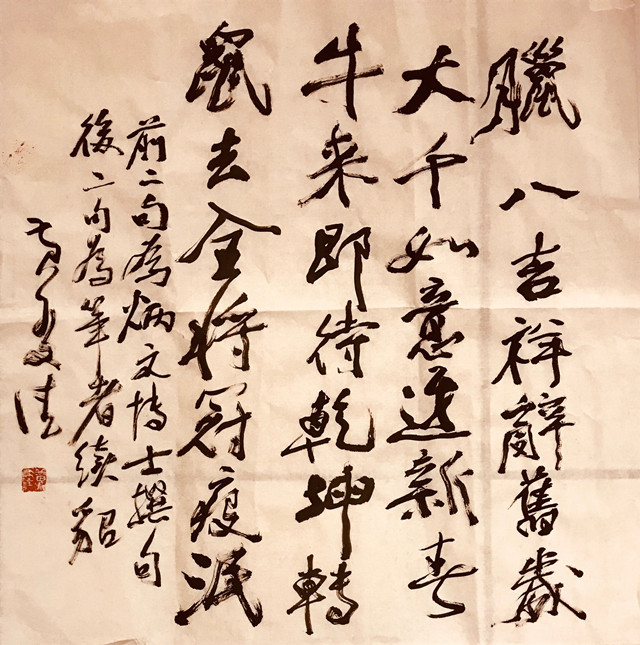 臘八吉祥辭舊歲
大千如意迎新春
牛来即待乾坤轉
鼠去全将冠疫泯
前二句為炳文博士撰句
後二句為筆者續貂